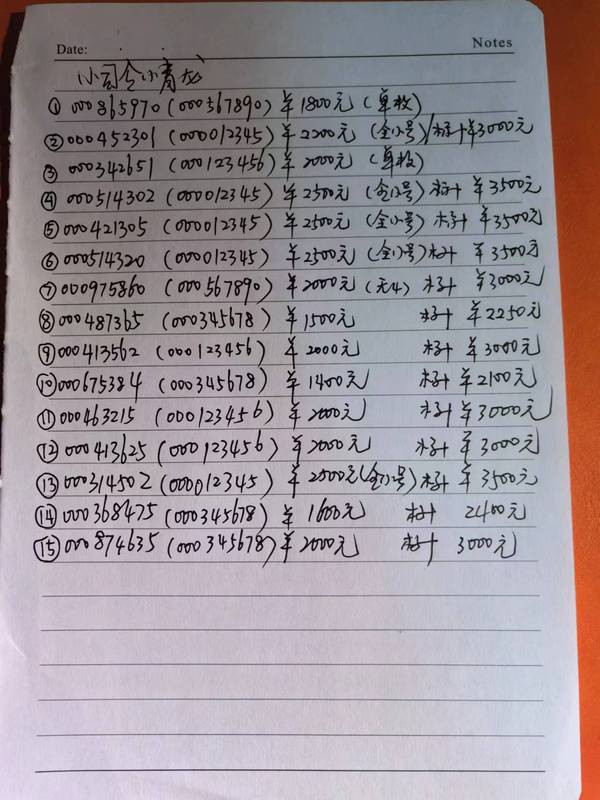 Date:
Notes
小司令小青龙
① 000865970 (000567890) ¥1800元 (单枚)
② 000452301 (000012345) ¥2200元 (全小号)/标十¥3000元
③ 000342651 (000123456) ¥2000元 (单枚)
④ 000514302 (000012345) ¥2500元 (全小号) 标十 ¥3500元
⑤ 000421305 (000012345) ¥2500元 (全小号) 标十 ¥3500元
⑥ 000514320 (000012345) ¥2500元 (全小号) 标十 ¥3500元
⑦ 000975860 (000567890) ¥2000元 (无4) 标十 ¥3000元
⑧ 000487365 (000345678) ¥1500元 标十 ¥2250元
⑨ 000413562 (000123456) ¥2000元 标十 ¥3000元
⑩ 000675384 (000345678) ¥1400元 标十 ¥2100元
⑪ 000463215 (000123456) ¥2000元 标十 ¥3000元
⑫ 000413625 (000123456) ¥2000元 标十 ¥3000元
⑬ 000314502 (000012345) ¥2500元 (全小号) 标十 ¥3500元
⑭ 000368475 (000345678) ¥1600元 标十 2400元
⑮ 000874635 (000345678) ¥2000元 标十 3000元